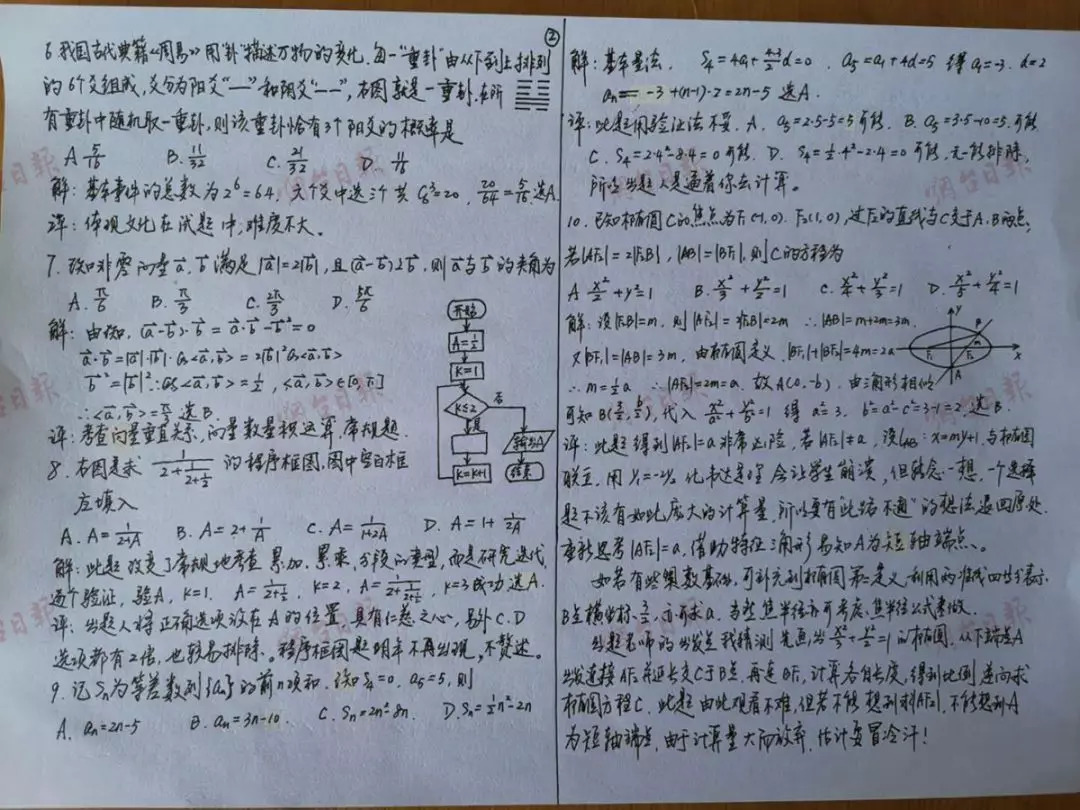 ②
6.我国古代典籍《周易》用"卦"描述万物的变化.每一"重卦"由从下到上排列
的6个爻组成,爻分为阳爻"—"和阴爻"--",右图就是一重卦.在所
有重卦中随机取一重卦,则该重卦恰有3个阳爻的概率是
A. 5/16 B. 11/32 C. 21/32 D. 11/16
解:基本事件的总数为2^6=64,六个爻中选三个共C_6^3=20, 20/64=5/16 选A
评:体现文化在试题中,难度不大。
7.已知非零向量a,b满足|a|=2|b|,且(a-b)⊥b,则a与b的夹角为
A. π/6 B. π/3 C. 2π/3 D. 5π/6
解:由已知,(a-b)·b=a·b-b²=0
a·b=|a|·|b|·cos<a,b>=2|b|²cos<a,b>
b²=|b|²∴cos<a,b>=1/2,<a,b>∈[0,π]
∴<a,b>=π/3 选B.
评:考查向量垂直关系,向量数量积运算,常规题.
8.右图是求 1/(2+1/(2+1/2)) 的程序框图,图中空白框
应填入
A. A=1/(2+A) B. A=2+1/A C. A=1/(1+2A) D. A=1+1/(2A)
解:此题改变了常规地考查累加、累乘、分段的类型,而是研究迭代,
逐个验证,验A, K=1, A=1/(2+1/2), K=2, A=1/(2+1/(2+1/2)), K=3成功,选A.
评:出题人将正确选项设在A的位置,具有仁慈之心,另外C.D
选项都有2倍,也较易排除。程序框图是明年不再出现,不赘述。
9.记Sn为等差数列{an}的前n项和.已知S4=0,a5=5,则
A. an=2n-5 B. an=3n-10. C. Sn=2n²-8n. D. Sn=1/2n²-2n
开始
A=1/2
K=1
K≤2
否
是
输出A
K=K+1
结束
解:基本量法, S4=4a1+4·3/2 d=0, a5=a1+4d=5 得a1=-3, d=2
an=-3+(n-1)·2=2n-5 选A.
评:此题用验证法不妥.A. a5=2·5-5=5可能. B. a5=3·5-10=5.可能
C. S4=2·4²-8·4=0可能. D. S4=1/2·4²-2·4=0可能,无一能排除,
所以出题人是逼着你去计算。
10.已知椭圆C的焦点为F1(-1,0). F2(1,0),过F2的直线与C交于A.B两点,
若|AF2|=2|F2B|,|AB|=|BF1|,则C的方程为
A. x²/2+y²=1 B. x²/3+y²/2=1 C. x²/4+y²/3=1 D. x²/5+y²/4=1
解:设|F2B|=m,则|AF2|=2|F2B|=2m ∴|AB|=m+2m=3m.
又|BF1|=|AB|=3m,由椭圆定义,|BF1|+|BF2|=4m=2a
∴m=1/2a ∴|AF2|=2m=a. 故A(0,-b).由三角形相似
可知B(3/2,b/2),代入 x²/a²+y²/b²=1 得a²=3. b²=a²-c²=3-1=2,选B.
评:此题得到|AF2|=a非常凶险,若|AF2|≠a,设lAB:x=my+1,与椭圆
联立,用y1=-2y2 比韦达定理会让学生崩溃,但转念一想,一个选择
题不该有如此庞大的计算量,所以要有"此路不通"的想法退回原处.
重新思考|AF2|=a,借助特征三角形易知A为短轴端点、
如若有些集奥基础,可补充利椭圆第二定义,利用两准线四等分表示
B点横坐标3/2,亦可求a.当然焦半径亦可考虑,焦半径公式表做.
出题老师的出发点我猜测先画出x²/3+y²/2=1的椭圆,从下端点A
出发连接AF2并延长交C于B点,再连BF1,计算各自长度,得到比例逆向求
椭圆方程C.此题由此观看不难,但若不能想到求|AF2|,不能想到A
为短轴端点,由于计算量大而放弃,估计要冒冷汗!
y
x
F1
F2
A
B
m
烟台日报